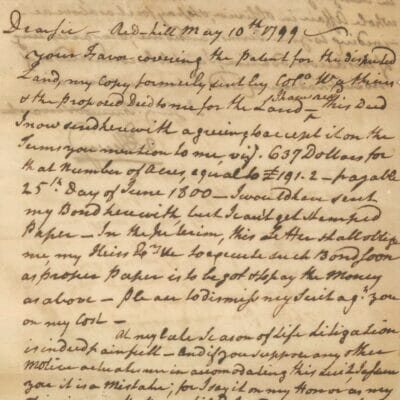 Dear sir — Red-hill May 10th 1799
your Favor covering the patent for the disputed
Land, my Copy formerly sent by Colo. Watkins
& the proposed Deed to me for the Land I have recd — this Deed
I now send herewith agreeing to accept it on the
Terms you mention to me, viz. 637 Dollars for
that Number of Acres, equal to £191.2 — payable
25th Day of June 1800 — I would have sent
my Bond herewith but I can't get Stamped
Paper — In the Interim, this Letter shall oblige
me, my Heirs &c to execute such Bond soon
as proper Paper is to be got & to pay the Money
as above — Please to dismiss my Suit agt you
on my Cost —
At my late Season of Life Litigation
is indeed painfull — and if you suppose any other
Motive actuates me in accomodating this Suit between
you it is a Mistake; for I say it on my Honor as my